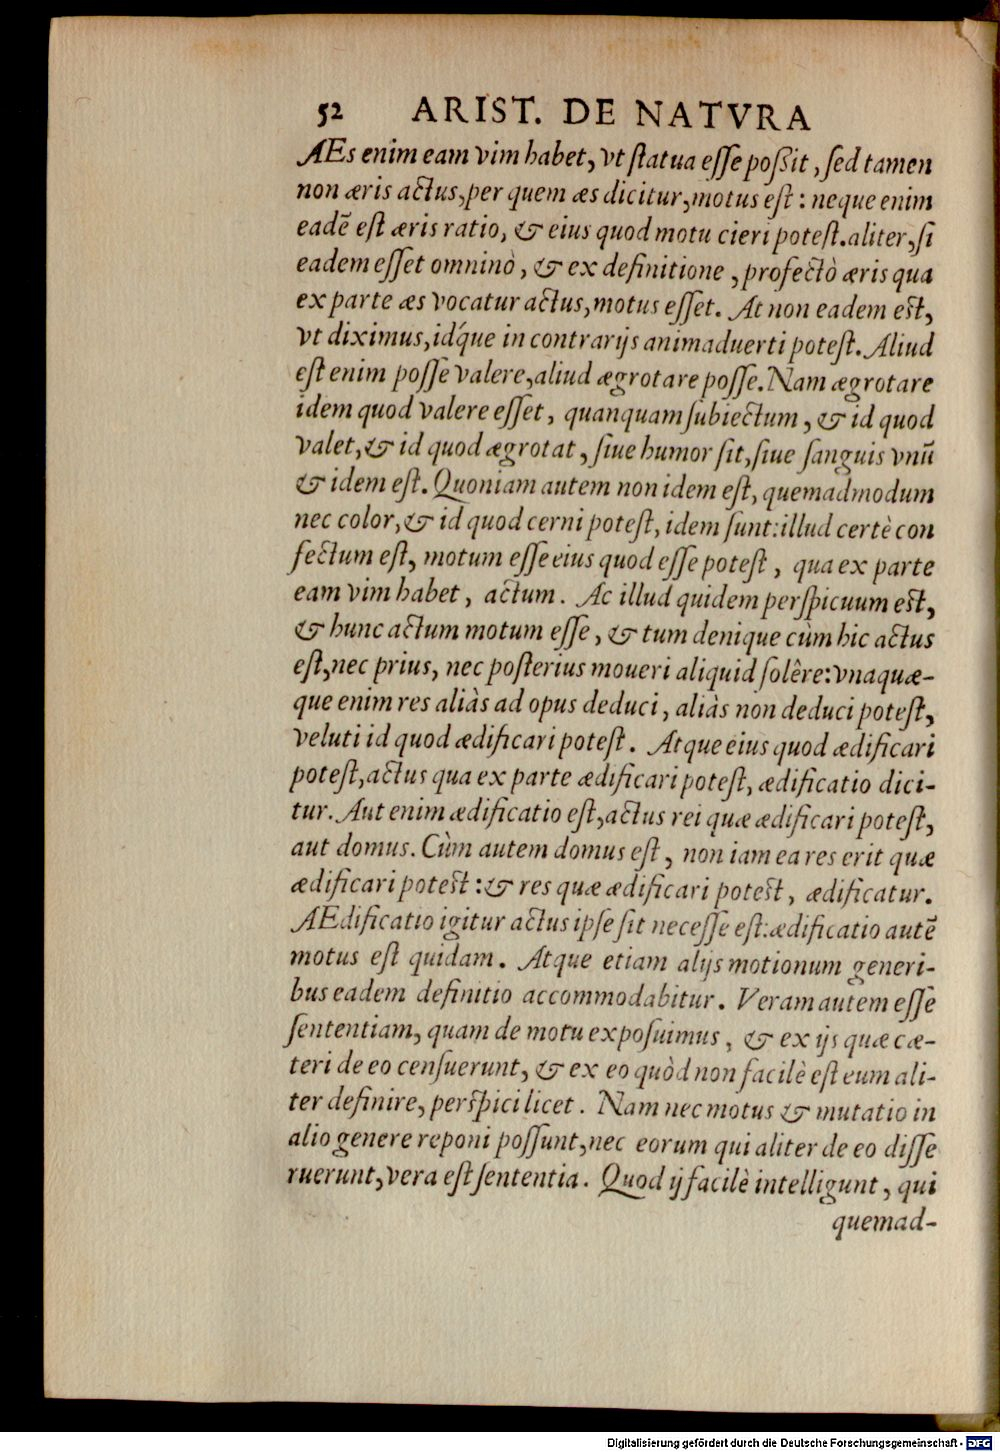 52 ARIST. DE NATVRA
AEs enim eam vim habet, vt ſtatua eſſe poßit, ſed tamen
non æris actus, per quem æs dicitur, motus eſt: neque enim
eadē eſt æris ratio, & eius quod motu cieri poteſt. aliter, ſi
eadem eſſet omninò, & ex definitione, profectò æris qua
ex parte æs vocatur actus, motus eſſet. At non eadem eſt,
vt diximus, idq́ue in contrarijs animaduerti poteſt. Aliud
eſt enim poſſe valere, aliud ægrotare poſſe. Nam ægrotare
idem quod valere eſſet, quanquam ſubiectum, & id quod
valet, & id quod ægrotat, ſiue humor ſit, ſiue ſanguis vnū
& idem eſt. Quoniam autem non idem eſt, quemadmodum
nec color, & id quod cerni poteſt, idem ſunt: illud certè con
fectum eſt, motum eſſe eius quod eſſe poteſt, qua ex parte
eam vim habet, actum. Ac illud quidem perſpicuum eſt,
& hunc actum motum eſſe, & tum denique cùm hic actus
eſt, nec prius, nec poſterius moueri aliquid ſolêre: vnaquæ-
que enim res aliàs ad opus deduci, aliàs non deduci poteſt,
veluti id quod ædificari poteſt. Atque eius quod ædificari
poteſt, actus qua ex parte ædificari poteſt, ædificatio dici-
tur. Aut enim ædificatio eſt, actus rei quæ ædificari poteſt,
aut domus. Cùm autem domus eſt, non iam ea res erit quæ
ædificari poteſt: & res quæ ædificari poteſt, ædificatur.
AEdificatio igitur actus ipſe ſit neceſſe eſt: ædificatio autē
motus eſt quidam. Atque etiam alijs motionum generi-
bus eadem definitio accommodabitur. Veram autem eſſe
ſententiam, quam de motu expoſuimus, & ex ijs quæ cæ-
teri de eo cenſuerunt, & ex eo quòd non facilè eſt eum ali-
ter definire, perſpici licet. Nam nec motus & mutatio in
alio genere reponi poſſunt, nec eorum qui aliter de eo diſſe
ruerunt, vera eſt ſententia. Quod ij facilè intelligunt, qui
quemad-
Digitalisierung gefördert durch die Deutsche Forschungsgemeinschaft - DFG